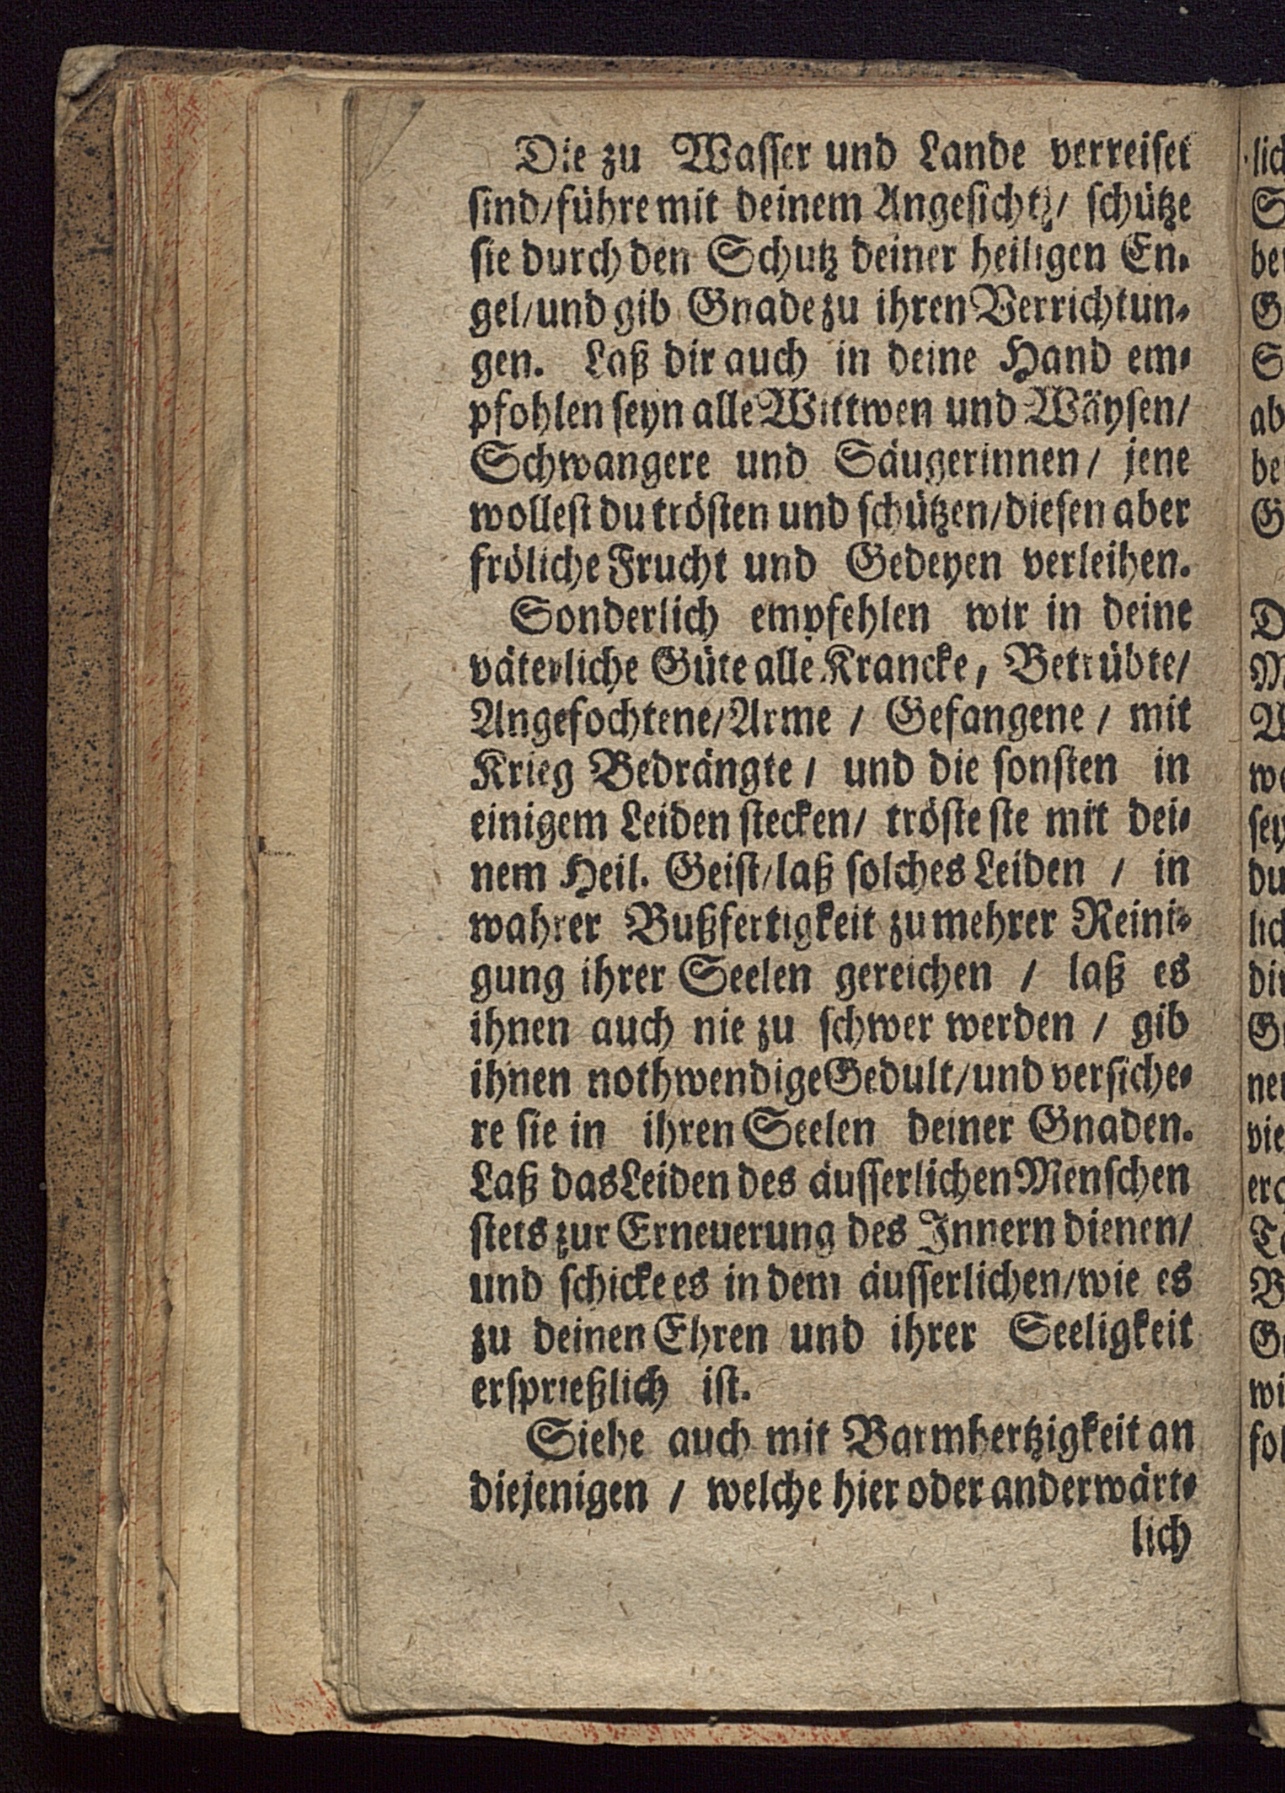 Die zu Wasser und Lande verreiset
sind/führe mit deinem Angesicht/ schütze
sie durch den Schutz deiner heiligen En-
gel/und gib Gnade zu ihren Verrichtun-
gen. Laß dir auch in deine Hand em-
pfohlen seyn alle Wittwen und Wäysen/
Schwangere und Säugerinnen/ jene
wollest du trösten und schützen/diesen aber
fröliche Frucht und Gedeyen verleihen.
Sonderlich empfehlen wir in deine
väterliche Güte alle Krancke, Betrübte/
Angefochtene/Arme / Gefangene / mit
Krieg Bedrängte / und die sonsten in
einigem Leiden stecken/ tröste sie mit dei-
nem Heil. Geist/laß solches Leiden / in
wahrer Bußfertigkeit zu mehrer Reini-
gung ihrer Seelen gereichen / laß es
ihnen auch nie zu schwer werden / gib
ihnen nothwendige Gedult/und versiche-
re sie in ihren Seelen deiner Gnaden.
Laß das Leiden des äusserlichen Menschen
stets zur Erneuerung des Innern dienen/
und schicke es in dem äusserlichen/wie es
zu deinen Ehren und ihrer Seeligkeit
ersprießlich ist.
Siehe auch mit Barmhertzigkeit an
diejenigen / welche hier oder anderwärt-
lich